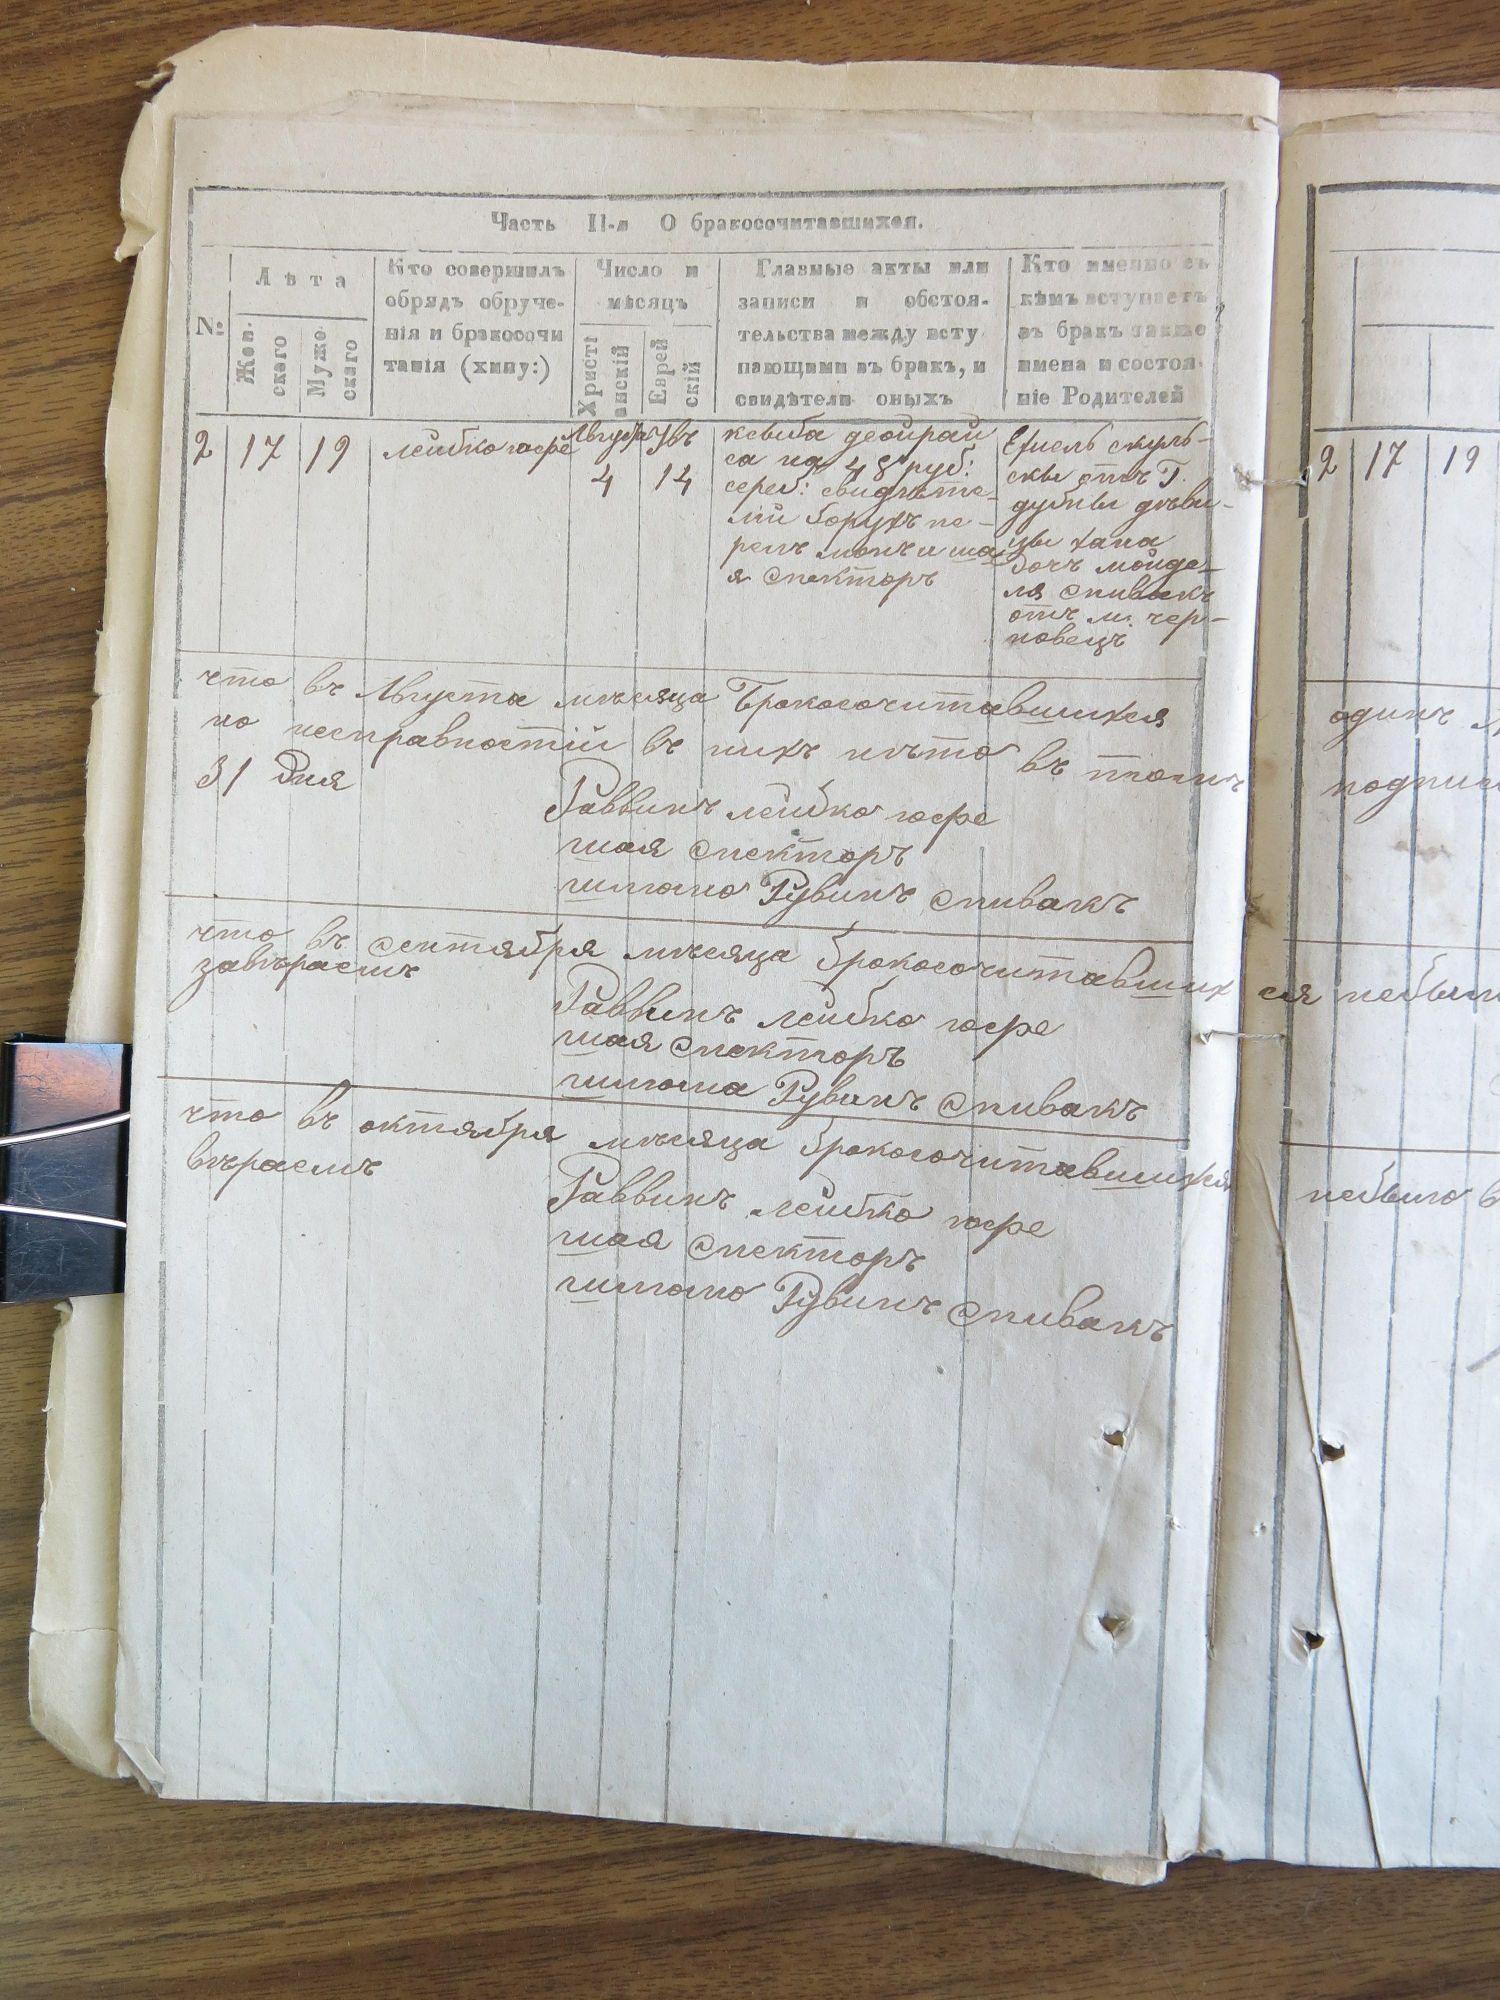 Часть II-я О бракосочитавшихся.
№
Лѣта
Жен-
скаго
Муже-
скаго
Кто совершилъ
обрядъ обруче-
нія и бракосочи
танія (хипу:)
Число и
мѣсяцъ
Христі
анскій
Еврей
скій
Главные акты или
записи и обстоя-
тельства между всту
пающими въ брак, и
свидѣтели оныхъ
Кто именно съ
кѣмъ вступаетъ
въ брак также
имена и состоя-
ніе Родителей
2 17 19
лейбко юфе
Августа
4
14
на 48 руб:
сереб: свидѣте-
ли борухъ
и ша
я спекторъ
отъ Г.
дубны дѣви-
цы хана
дочь
ля спивакъ
отъ м. чер-
новецъ
что въ Августа мѣсяца Бракосочитавшихся
но несправностій въ нихъ нѣто въ томъ
31 Дня
Раввинъ лейбко юфе
шая спекторъ
шлома Рувинъ спивакъ
что въ сентября мѣсяца бракосочитавших ся небыло
завѣраемъ
Раввинъ лейбко юфе
шая спекторъ
шлома Рувинъ спивакъ
что въ октября мѣсяца бракосочитавшихся
вѣраемъ
Раввинъ лейбко юфе
шая спекторъ
шлома Рувинъ спивакъ
2 17 19
одинъ
небыло